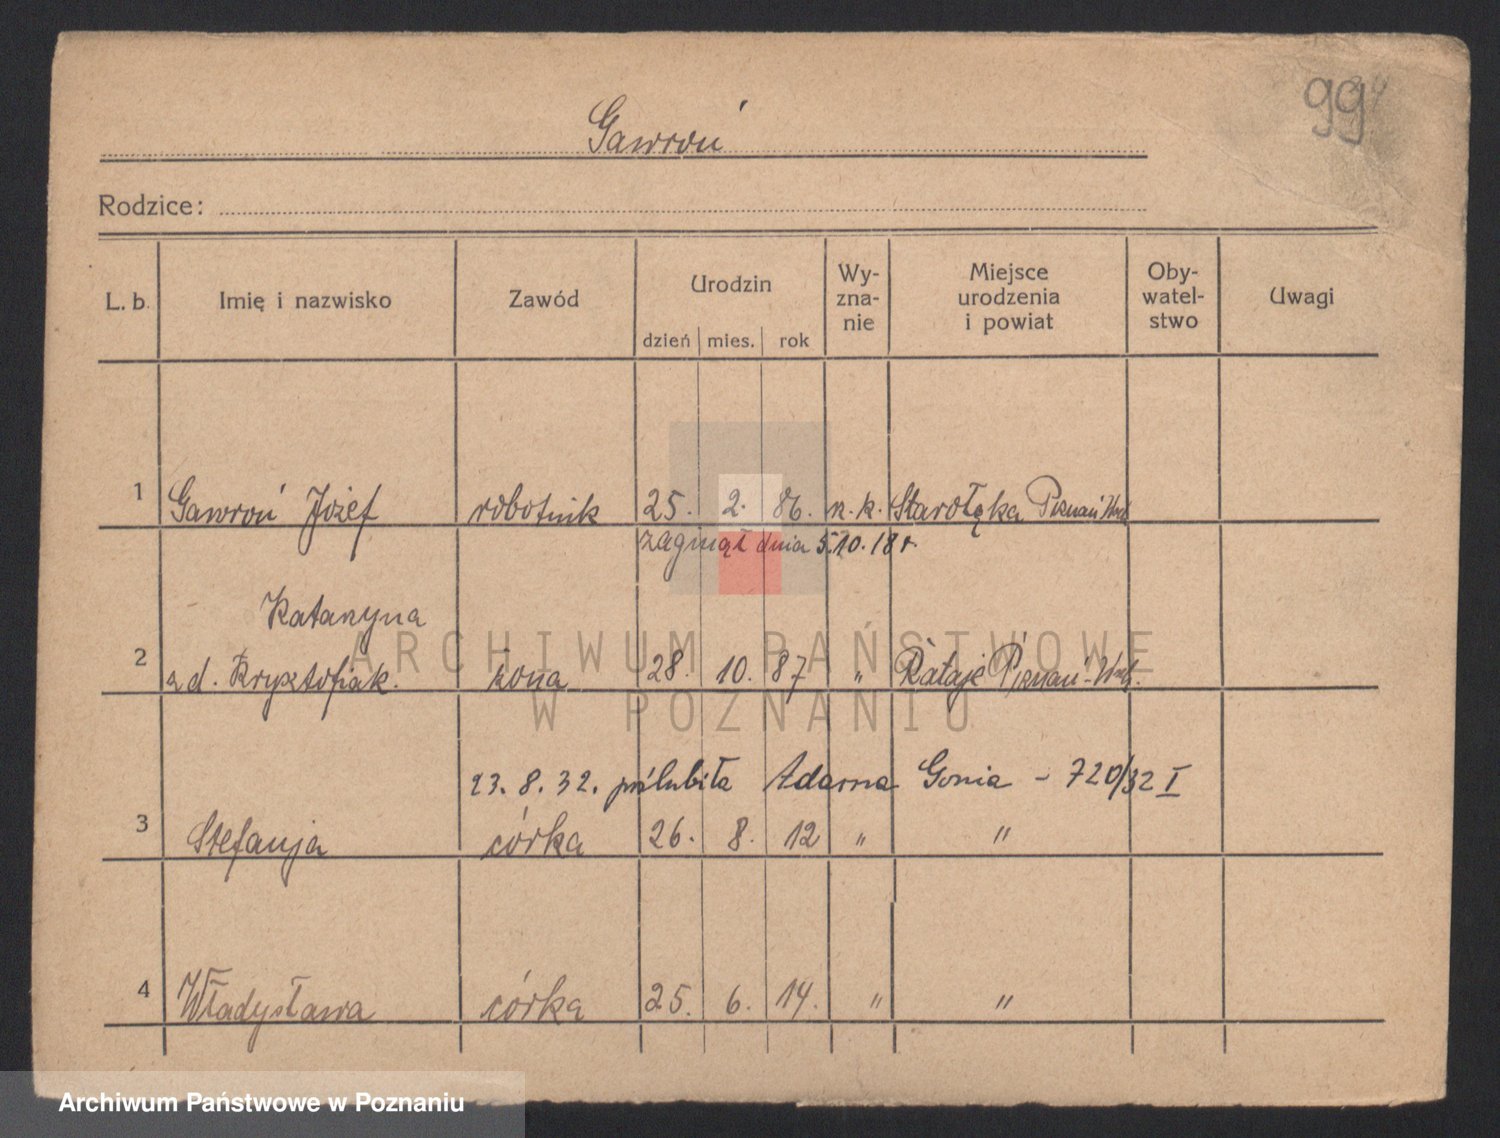 99
Gawroń
Rodzice:
L. b. Imię i nazwisko Zawód Urodzin dzień mies. rok Wy-zna-nie Miejsce urodzenia i powiat Oby-watel-stwo Uwagi
1 Gawroń Józef robotnik 25. 2. 86. r. k. Starołęka Poznań Wsch
zaginął dnia 5.10.18 r.
Katarzyna
2 z d. Krysztofiak. żona 28. 10. 87 „ Rataje Poznań-Wsch.
23. 8. 32. poślubiła Adama Gonia - 720/32 I
3 Stefanja córka 26. 8. 12 „ „
4 Władysława córka 25. 6. 14. „ „
ARCHIWUM PAŃSTWOWE
W POZNANIU
Archiwum Państwowe w Poznaniu